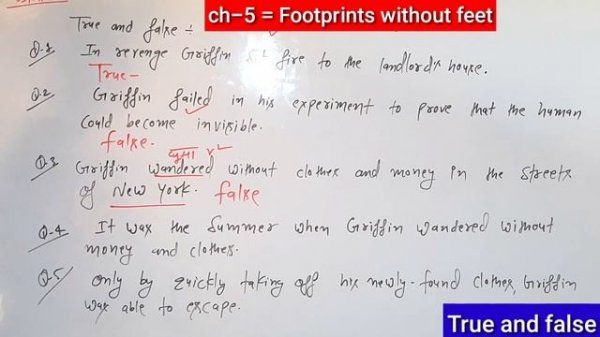 ch-5 = Footprints without feet
True and false ÷
Q.1 In revenge Griffin set fire to the landlord's house.
True -
Q.2 Griffin failed in his experiment to prove that the human
could become invisible.
false.
घूमा
Q.3 Griffin wandered without clothes and money in the streets
of New York. false
Q.4 It was the Summer when Griffin wandered without
money and clothes.
Q.5 only by quickly taking off his newly-found clothes, Griffin
was able to escape.
True and false